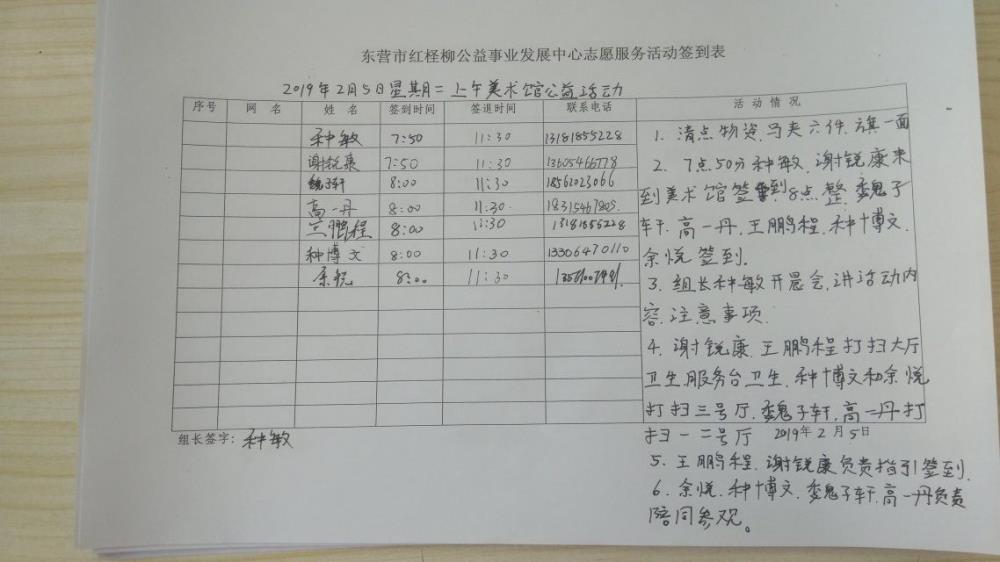 东营市红柽柳公益事业发展中心志愿服务活动签到表
2019年2月5日星期二上午美术馆公益活动
序号 网名 姓名 签到时间 签退时间 联系电话 活动情况
种敏 7:50 11:30 13181855228
谢锐康 7:50 11:30 13605466778
魏子轩 8:00 11:30 18562023066
高一丹 8:00 11:30 18315467805
王鹏程 8:00 11:30 13181855228
种博文 8:00 11:30 13306470110
余悦 8:00 11:30
1. 清点物资,马夹六件,旗一面
2. 7点50分种敏、谢锐康来
到美术馆签到,8点整,魏子
轩、高一丹、王鹏程、种博文、
余悦签到.
3. 组长种敏开晨会,讲活动内
容,注意事项.
4. 谢锐康、王鹏程打扫大厅
卫生,服务台卫生,种博文和余悦
打扫三号厅,魏子轩,高一丹打
扫一二号厅
2019年2月5日
5. 王鹏程、谢锐康负责指引签到.
6. 余悦、种博文、魏子轩、高一丹负责
陪同参观。
组长签字:种敏